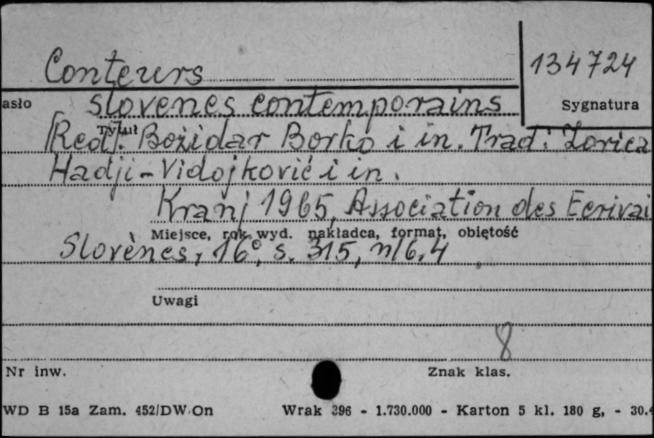 Conteurs
134724
asło
slovenes contemporains
Sygnatura
Tytuł
[Red]. Božidar Borko i in. Trad: Zorica
Hadji-Vidojković i in.
Kranj 1965, Association des Ecrivai
Miejsce, rok wyd. nakładca, format, objętość
Slovènes, 16°, s. 315, nlb. 4
Uwagi
8
Nr inw.
Znak klas.
WD B 15a Zam. 452/DW On
Wrak 396 - 1.730.000 - Karton 5 kl. 180 g, - 30.4